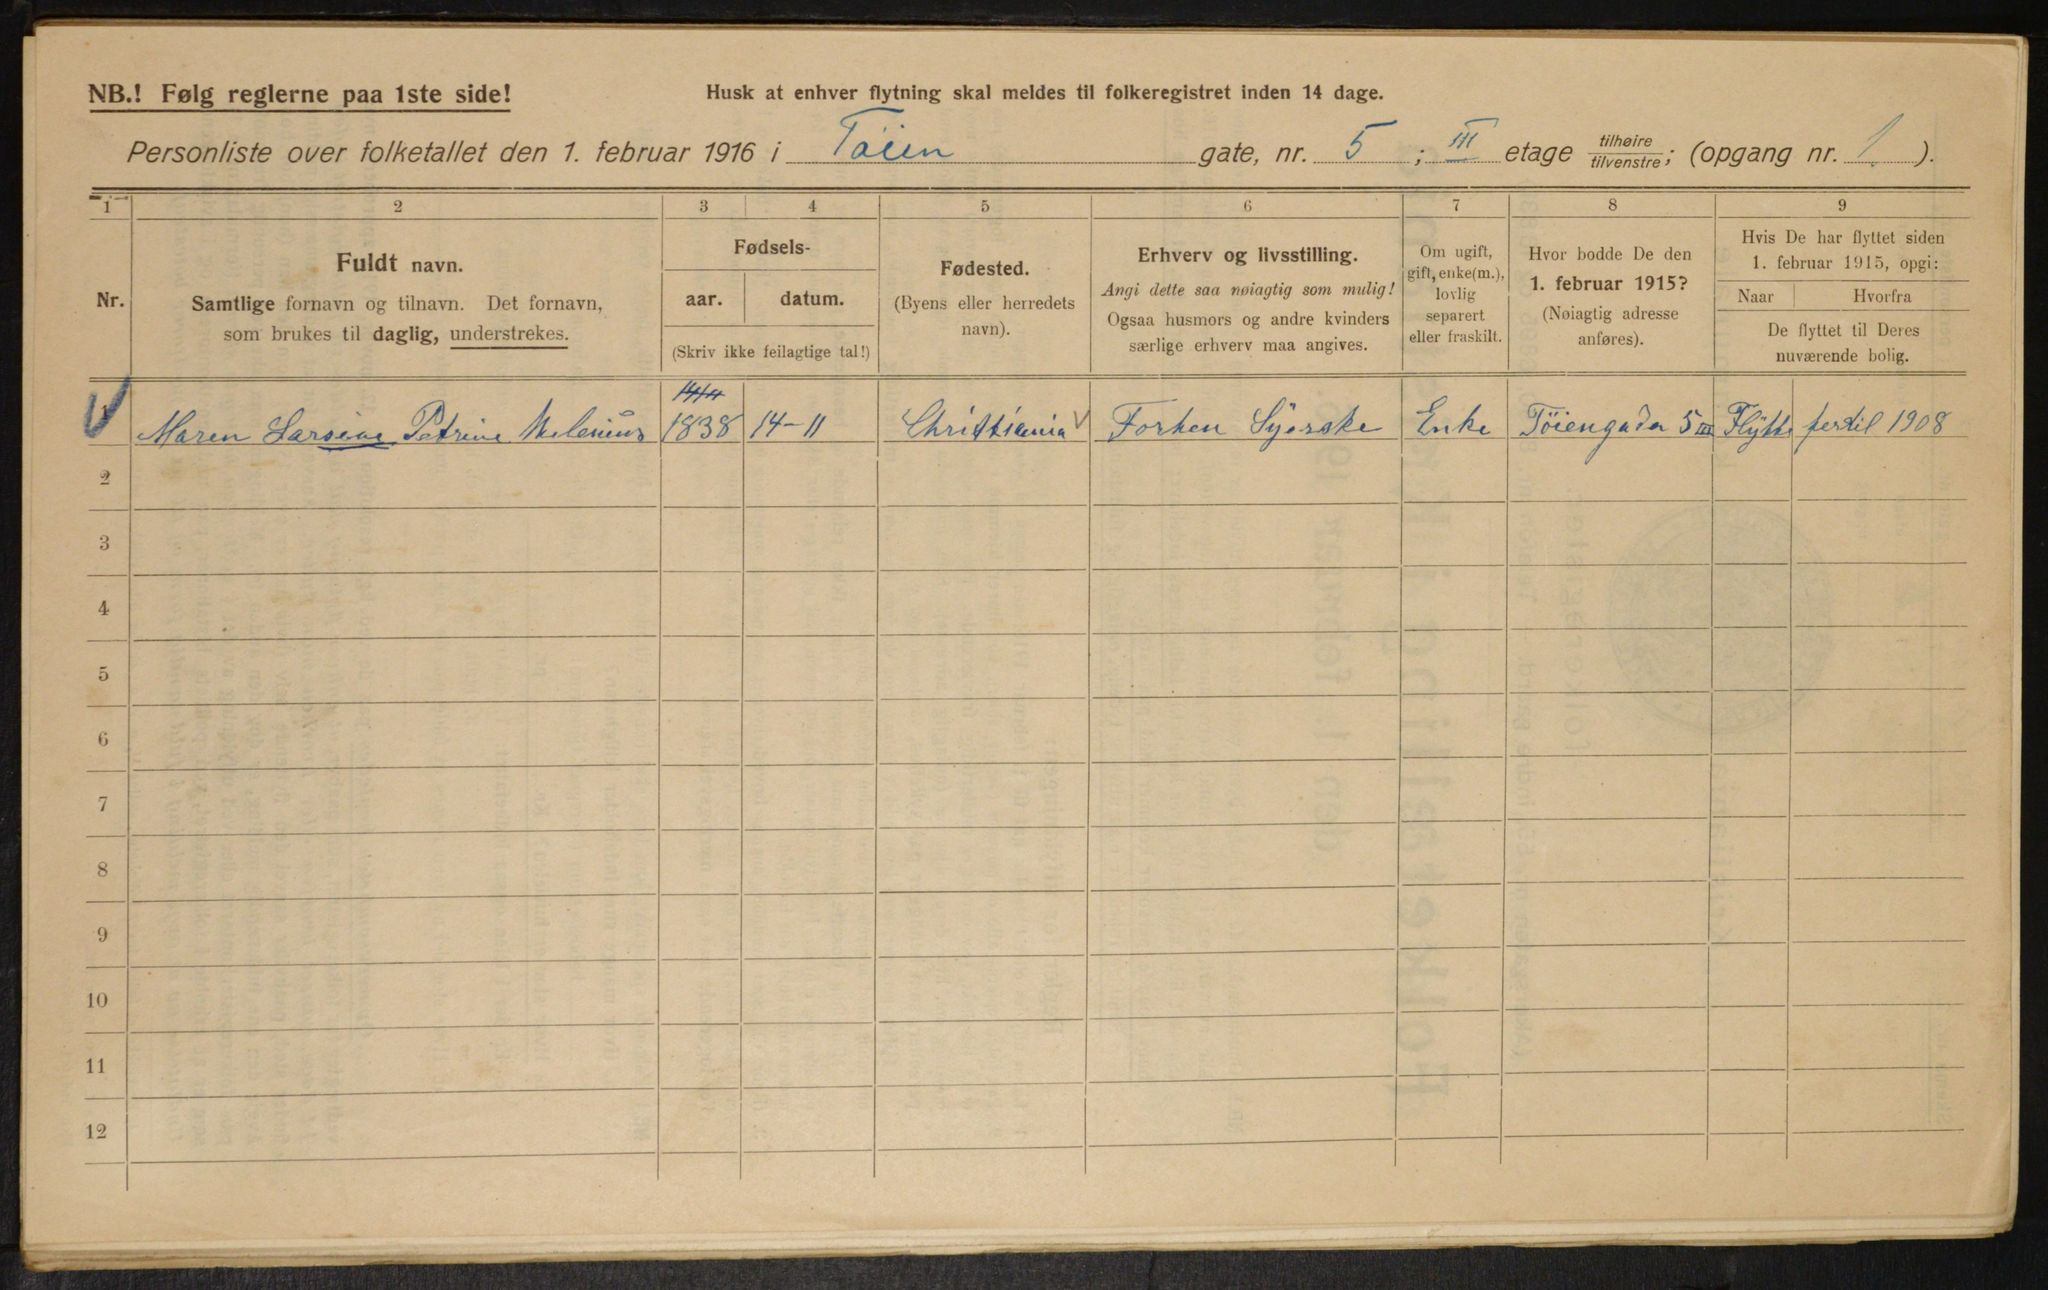 NB.! Følg reglerne paa 1ste side!
Husk at enhver flytning skal meldes til folkeregistret inden 14 dage.
Personliste over folketallet den 1. februar 1916 i Tøien gate, nr. 5 ; III etage tilhøire/tilvenstre; (opgang nr. 1 ).
1 2 3 4 5 6 7 8 9
Nr.
Fuldt navn.
Samtlige fornavn og tilnavn. Det fornavn,
som brukes til daglig, understrekes.
Fødsels-
aar. datum.
(Skriv ikke feilagtige tal!)
Fødested.
(Byens eller herredets
navn).
Erhverv og livsstilling.
Angi dette saa nøiagtig som mulig!
Ogsaa husmors og andre kvinders
særlige erhverv maa angives.
Om ugift,
gift, enke(m.),
lovlig
separert
eller fraskilt.
Hvor bodde De den
1. februar 1915?
(Nøiagtig adresse
anføres).
Hvis De har flyttet siden
1. februar 1915, opgi:
Naar Hvorfra
De flyttet til Deres
nuværende bolig.
1 Maren Larsine Petrine 1838 14-11 Christiania Forhen Syerske Enke Töiengada 5 III 1908
2
3
4
5
6
7
8
9
10
11
12